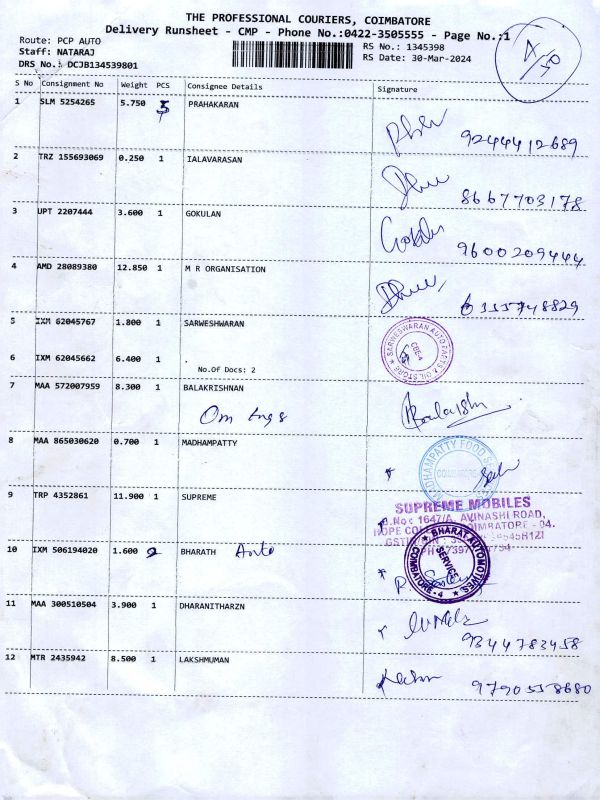 THE PROFESSIONAL COURIERS, COIMBATORE
Delivery Runsheet - CMP - Phone No.:0422-3505555 - Page No.:1
Route: PCP AUTO
RS No.: 1345398
Staff: NATARAJ
RS Date: 30-Mar-2024
DRS No.: DCJB134539801
S No Consignment No Weight PCS Consignee Details Signature
1 SLM 5254265 5.750 5 PRAHAKARAN
9244412689
2 TRZ 155693069 0.250 1 IALAVARASAN
8667703178
3 UPT 2207444 3.600 1 GOKULAN
Gokulan 9600209444
4 AMD 28089380 12.850 1 M R ORGANISATION
6355748829
5 IXM 62045767 1.800 1 SARWESHWARAN
SARWESWARAN AUTO PARTS & OIL STORE
CBE-4
6 IXM 62045662 6.400 1 .
No.Of Docs: 2
7 MAA 572007959 8.300 1 BALAKRISHNAN
Om Engs
8 MAA 865030620 0.700 1 MADHAMPATTY
MADHAMPATTY FOOD
COIMBATORE
9 TRP 4352861 11.900 1 SUPREME
SUPREME MOBILES
D.No: 1647/A, AVINASHI ROAD,
HOPE COIMBATORE - 04.
10 IXM 506194020 1.600 2 BHARATH Auto
BHARAT AUTOMOTIVES
SERVICE
COIMBATORE - 4
11 MAA 300510504 3.900 1 DHARANITHARZN
9344783458
12 MTR 2435942 8.500 1 LAKSHMUMAN
9790558680